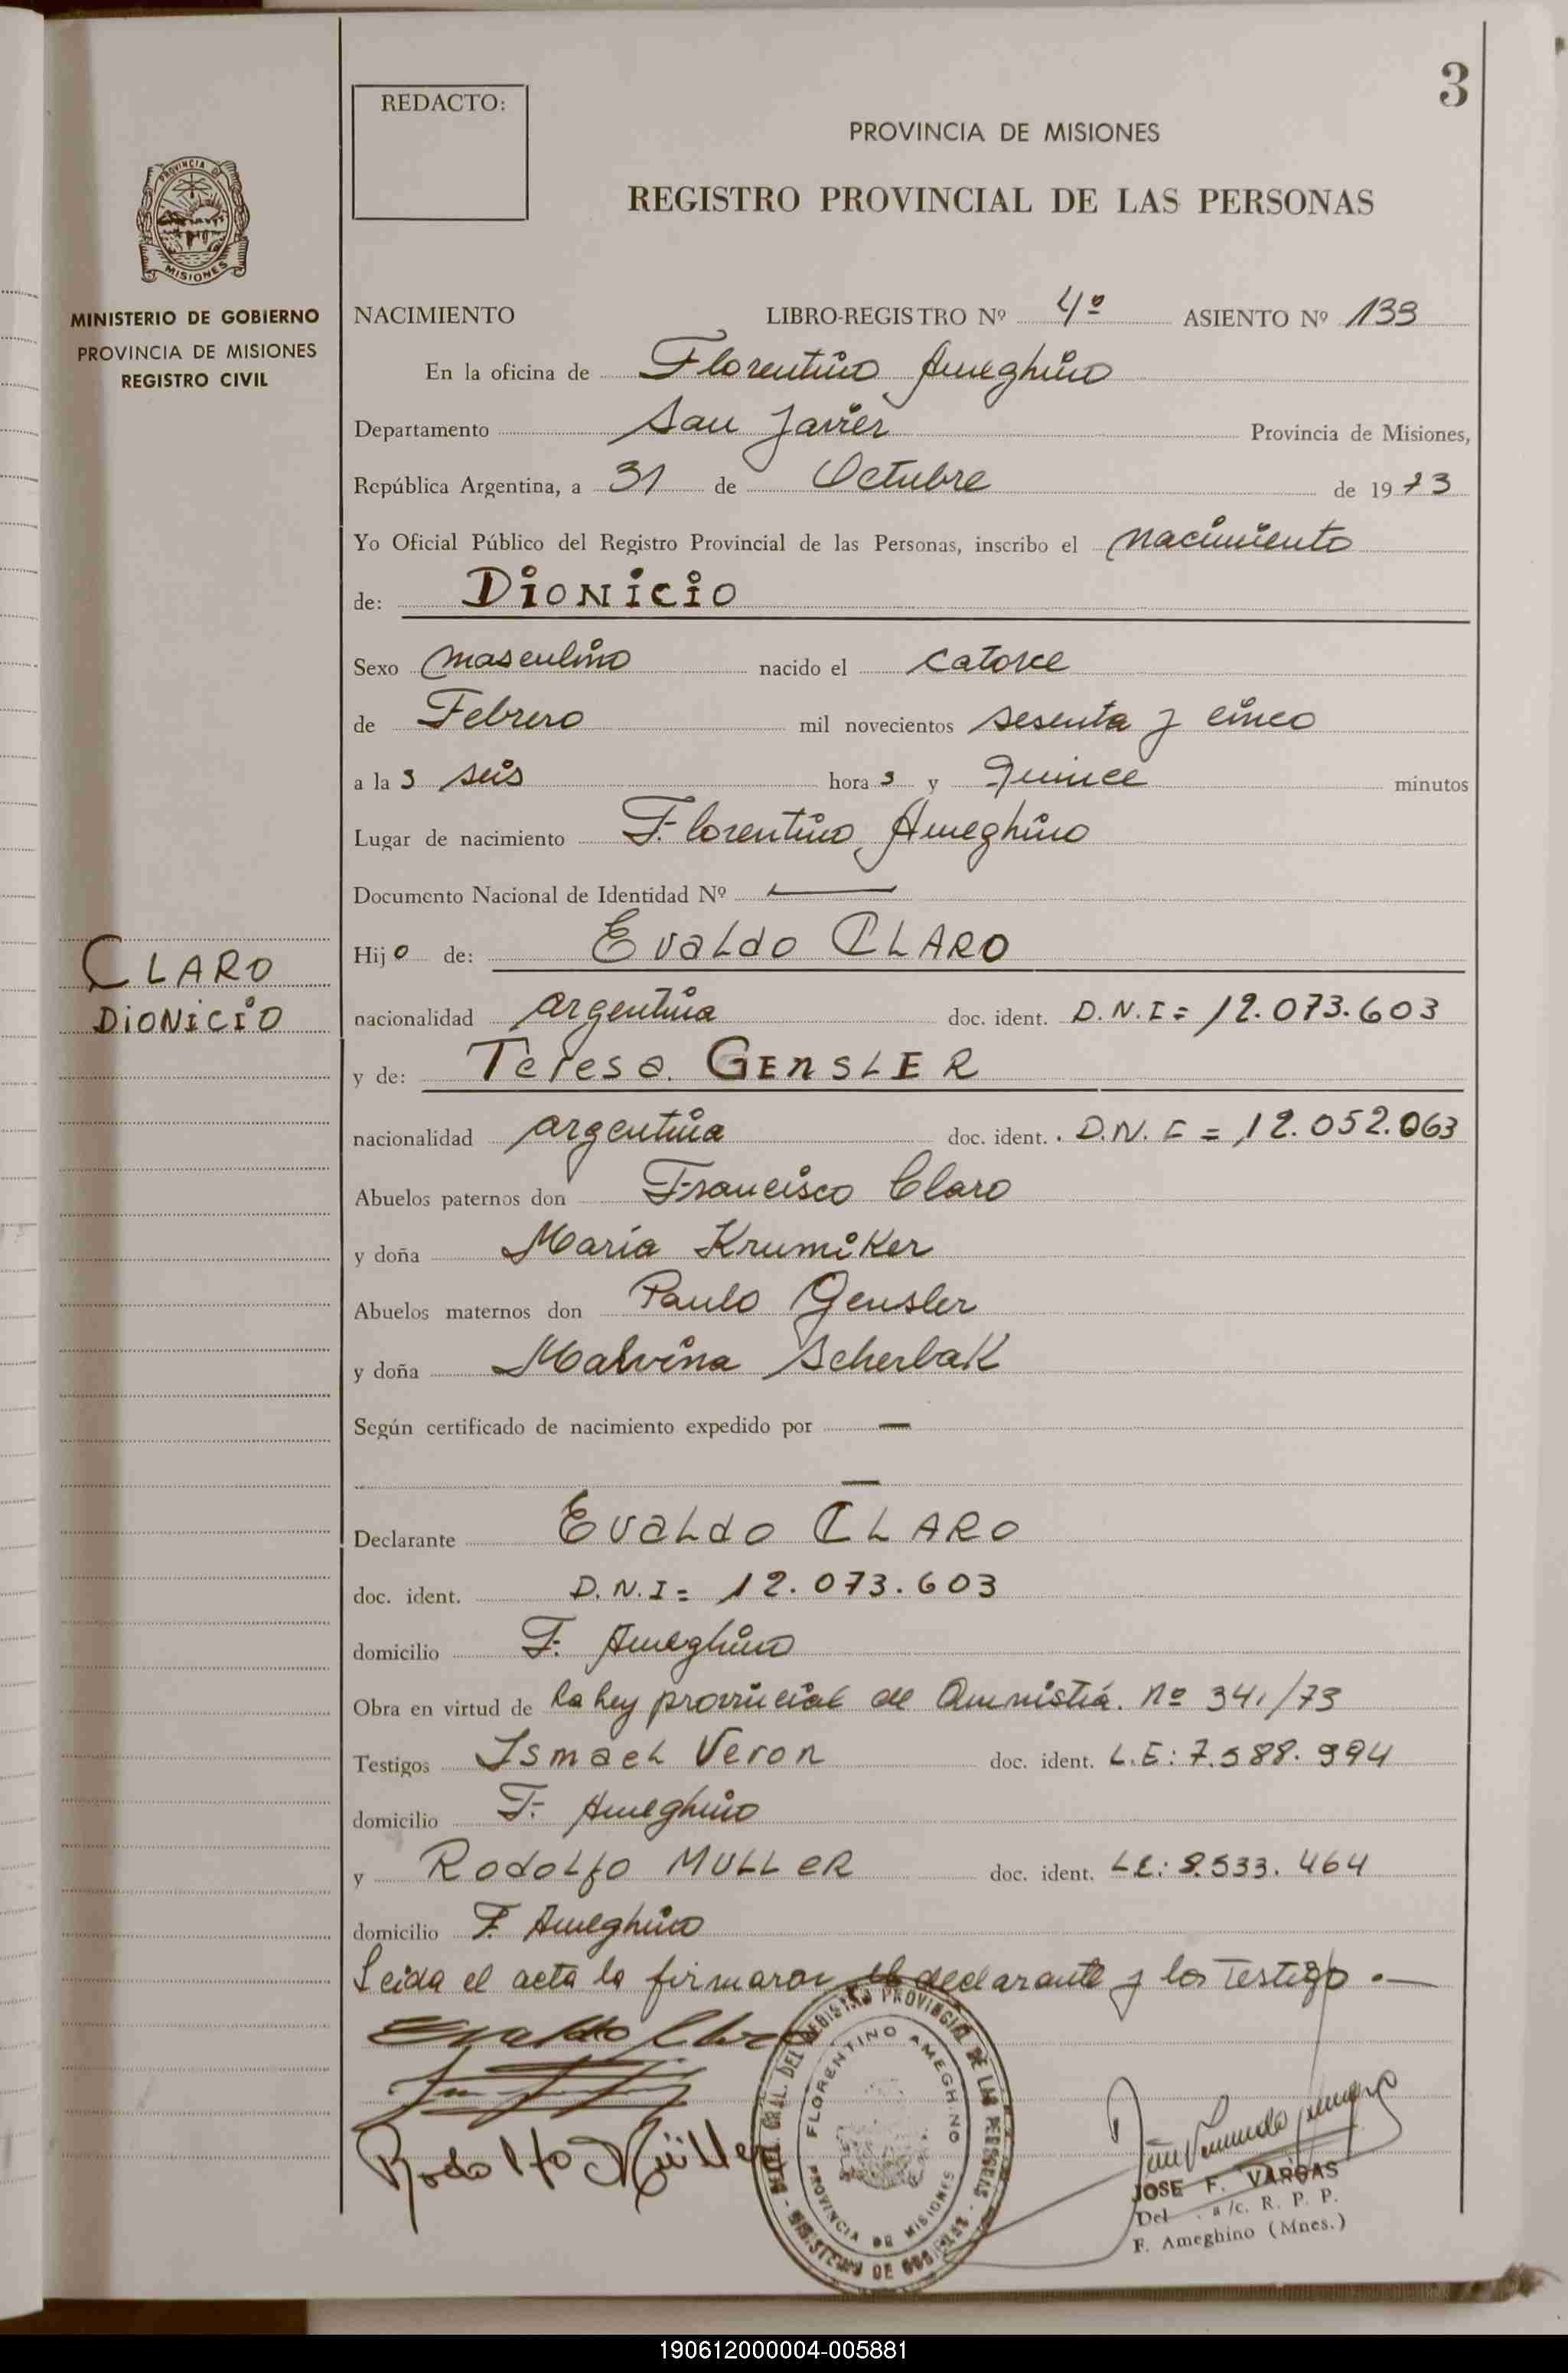 3
REDACTO:
PROVINCIA DE MISIONES
REGISTRO PROVINCIAL DE LAS PERSONAS
PROVINCIA DE
MISIONES
MINISTERIO DE GOBIERNO
PROVINCIA DE MISIONES
REGISTRO CIVIL
NACIMIENTO LIBRO-REGISTRO Nº 4º ASIENTO Nº 133
En la oficina de Florentino Ameghino
Departamento San Javier Provincia de Misiones,
República Argentina, a 31 de Octubre de 1973
Yo Oficial Público del Registro Provincial de las Personas, inscribo el nacimiento
de: DioNicio
Sexo masculino nacido el catorce
de Febrero mil novecientos sesenta y cinco
a la s seis hora s y Quince minutos
Lugar de nacimiento Florentino Ameghino
Documento Nacional de Identidad Nº —
Hijo de: Evaldo CLARO
CLARO
DioNiciO
nacionalidad argentina doc. ident. D.N.I = 12.073.603
y de: Teresa. GENSLER
nacionalidad argentina doc. ident. D.N.I = 12.052.063
Abuelos paternos don Francisco Claro
y doña María Krumiker
Abuelos maternos don Paulo Gensler
y doña Malvina Scherbak
Según certificado de nacimiento expedido por —
—
Declarante Evaldo CLARO
doc. ident. D.N.I = 12.073.603
domicilio F. Ameghino
Obra en virtud de la ley provincial de Amnistía. nº 341/73
Testigos Ismael Veron doc. ident. L.E: 7.588.994
domicilio F. Ameghino
y Rodolfo MULLER doc. ident. L.E: 8.533.464
domicilio F. Ameghino
Leida el acta la firmaron el declarante y los Testigo .—
Evaldo Claro
Rodolfo Müller
REGISTRO PROVINCIAL DE LAS PERSONAS
FLORENTINO AMEGHINO
PROVINCIA DE MISIONES
JOSE F. VARGAS
Del a/c. R. P. P.
F. Ameghino (Mnes.)
190612000004-005881